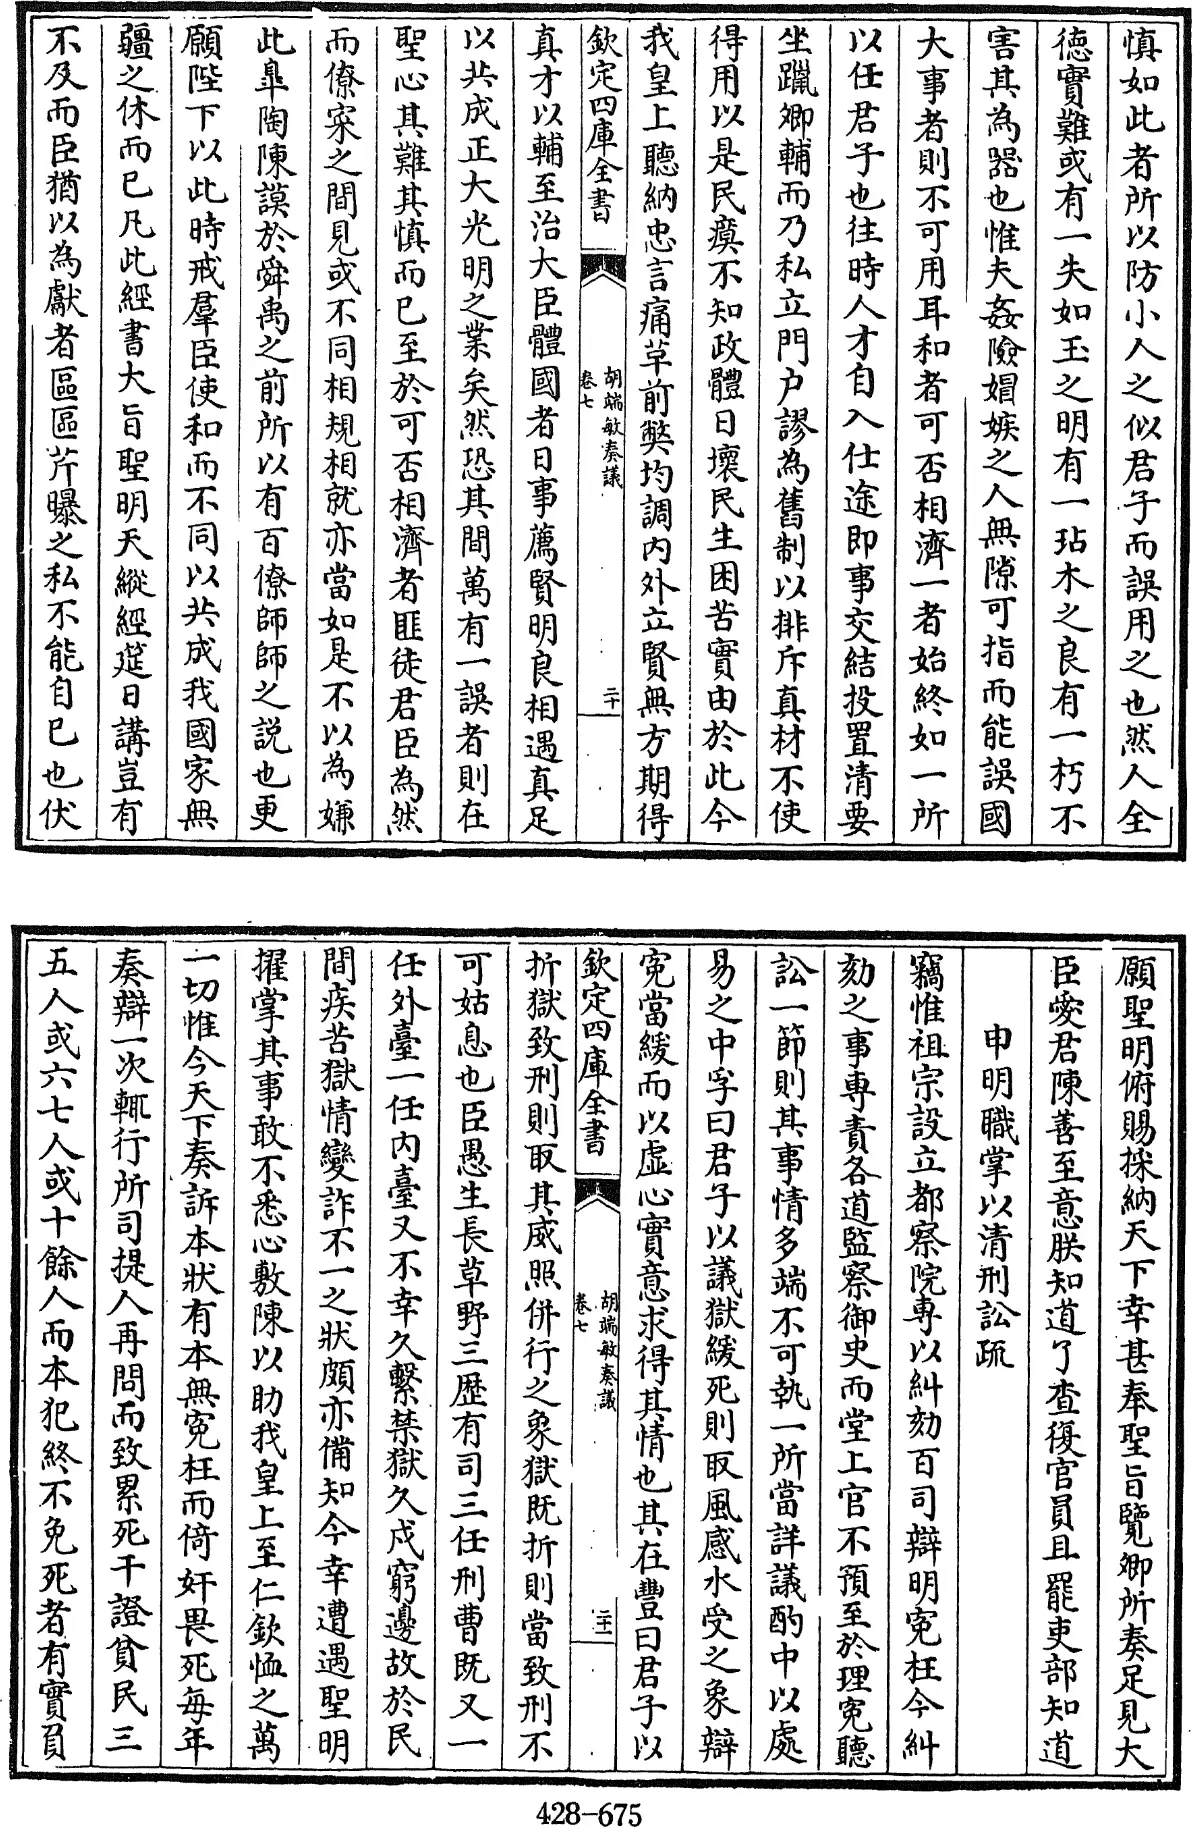 慎如此者所以防小人之似君子而誤用之也然人全
德實難或有一失如玉之明有一玷木之良有一朽不
害其為器也惟夫姦險媢嫉之人無隙可指而能誤國
大事者則不可用耳和者可否相濟一者始終如一所
以任君子也往時人才自入仕途即事交結投置清要
坐躐卿輔而乃私立門户謬為舊制以排斥真材不使
得用以是民瘼不知政體日壞民生困苦實由於此今
我皇上聽納忠言痛革前獘均調内外立賢無方期得
欽定四庫全書
胡端敏奏議
卷七
二十
真才以輔至治大臣體國者日事薦賢明良相遇真足
以共成正大光明之業矣然恐其間萬有一誤者則在
聖心其難其慎而已至於可否相濟者匪徒君臣為然
而僚寀之間見或不同相規相就亦當如是不以為嫌
此臯陶陳謨於舜禹之前所以有百僚師師之説也更
願陛下以此時戒羣臣使和而不同以共成我國家無
疆之休而已凡此經書大旨聖明天縱經筵日講豈有
不及而臣猶以為獻者區區芹曝之私不能自已也伏
願聖明俯賜採納天下幸甚奉聖旨覽卿所奏足見大
臣愛君陳善至意朕知道了查復官員且罷吏部知道
申明職掌以清刑訟疏
竊惟祖宗設立都察院專以糾劾百司辯明寃枉今糾
劾之事専責各道監察御史而堂上官不預至於理寃聽
訟一節則其事情多端不可執一所當詳議酌中以處
易之中孚曰君子以議獄緩死則取風感水受之象辯
寃當緩而以虛心實意求得其情也其在豐曰君子以
欽定四庫全書
胡端敏奏議
卷七
二十一
折獄致刑則取其威照併行之象獄既折則當致刑不
可姑息也臣愚生長草野三歴有司三任刑曹既又一
任外臺一任内臺又不幸久繫禁獄久戍窮邊故於民
間疾苦獄情變詐不一之狀頗亦備知今幸遭遇聖明
擢掌其事敢不悉心敷陳以助我皇上至仁欽恤之萬
一切惟今天下奏訴本狀有本無寃枉而倚奸畏死每年
奏辯一次輒行所司提人再問而致累死干證貧民三
五人或六七人或十餘人而本犯終不免死者有實負
428-675